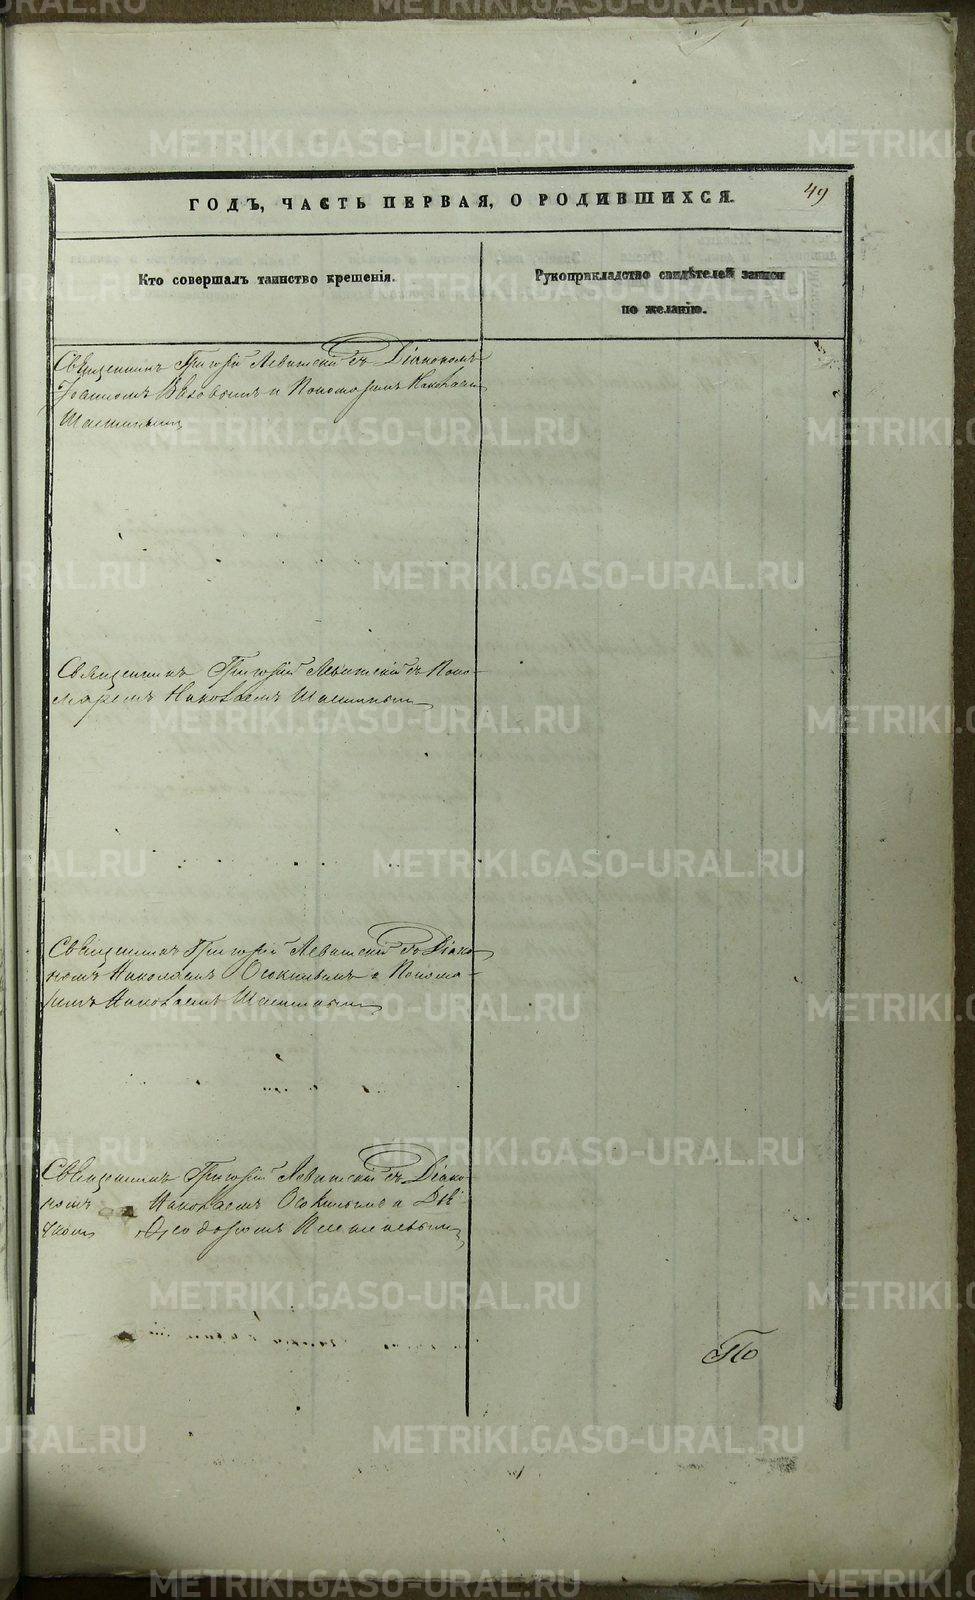 49
ГОДЪ, ЧАСТЬ ПЕРВАЯ, О РОДИВШИХСЯ.
Кто совершалъ таинство крещенія.
Рукоприкладство свидѣтелей записи
по желанію.
Священникъ Григорій Левитскій съ Діакономъ
Іоанномъ и Пономаремъ Николаем
Священникъ Григорій Левитскій съ Поно-
маремъ Николаемъ
Священникъ Григорій Левитскій съ Діако-
номъ Николаемъ Осокинымъ и Понома-
ремъ Николаемъ
Священникъ Григорій Левитскій съ Діако-
номъ Николаемъ Осокинымъ и Дья-
чкомъ Ѳеодоромъ
По
METRIKI.GASO-URAL.RU